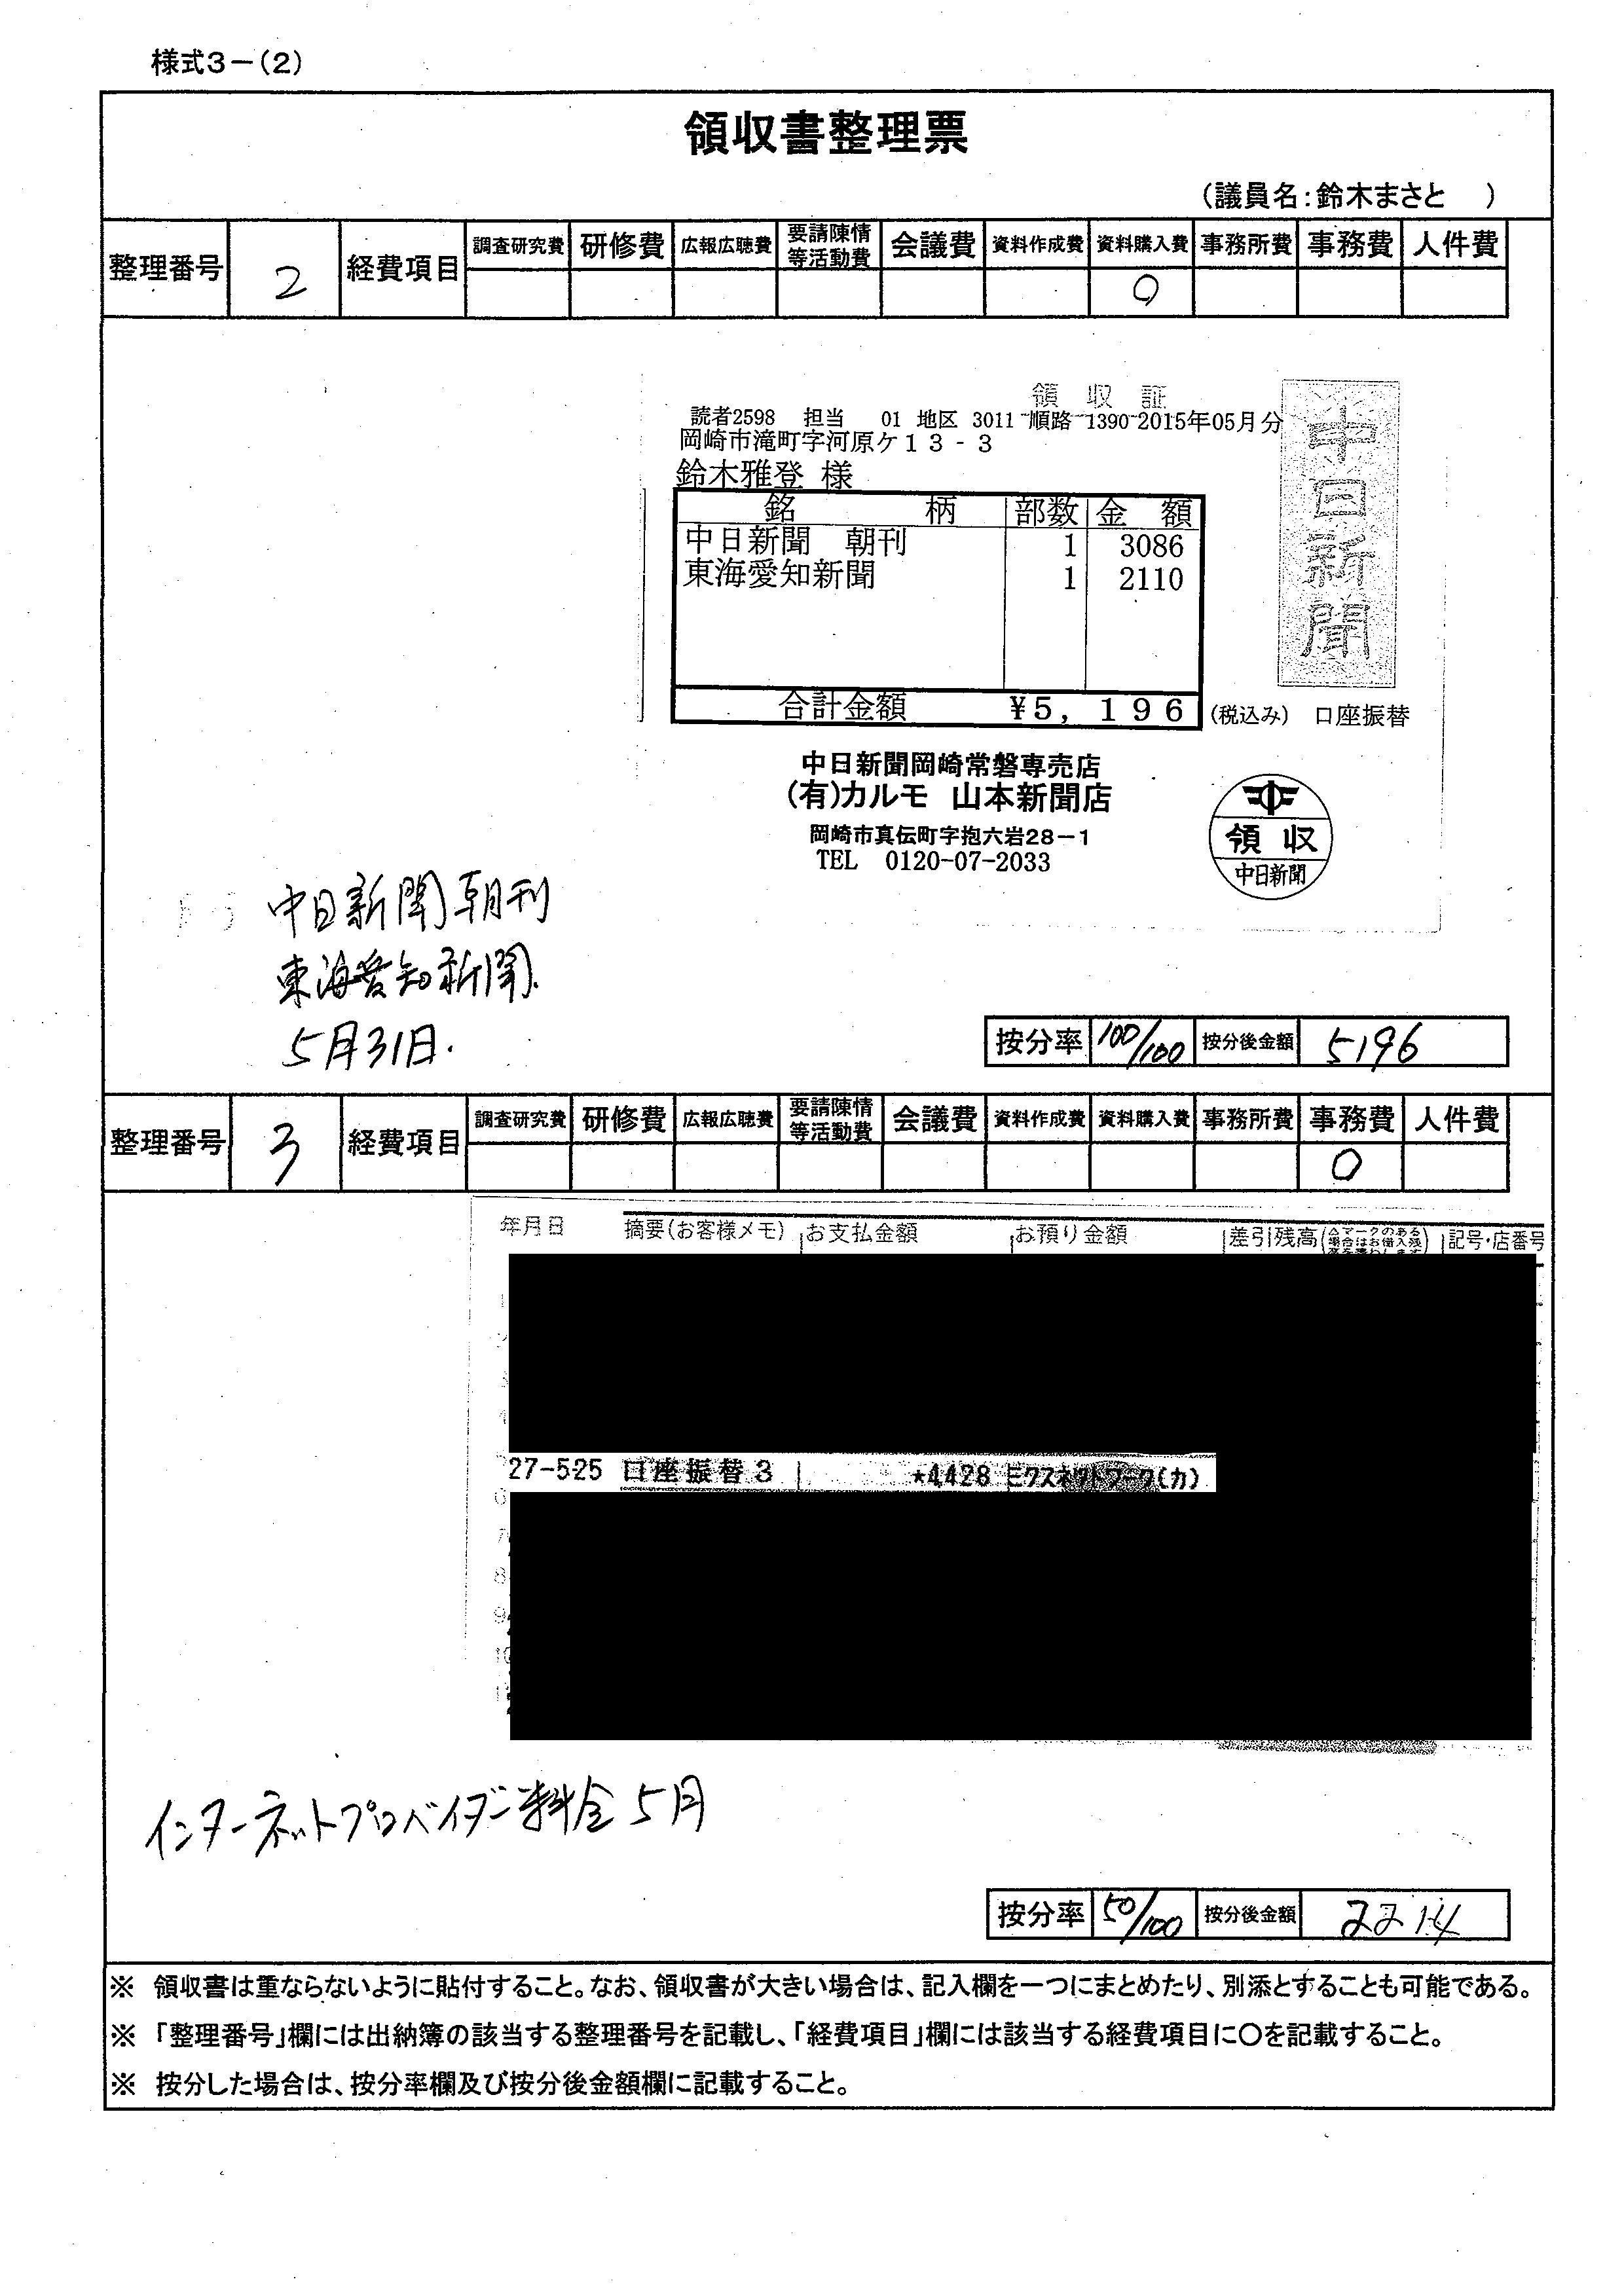 様式3－(2)
領収書整理票
(議員名:鈴木まさと　)
整理番号 2 経費項目 調査研究費 研修費 広報広聴費 要請陳情等活動費 会議費 資料作成費 資料購入費 事務所費 事務費 人件費
○
領 収 証
読者2598 担当 01 地区 3011 順路 1390 2015年05月分
岡崎市滝町字河原ケ13-3
鈴木雅登 様
銘 柄 部数 金 額
中日新聞 朝刊 1 3086
東海愛知新聞 1 2110
合計金額 ¥5,196 (税込み) 口座振替
中日新聞
中日新聞岡崎常磐専売店
(有)カルモ 山本新聞店
岡崎市真伝町字抱六岩28－1
TEL 0120-07-2033
領 収
中日新聞
中日新聞朝刊
東海愛知新聞.
5月31日.
按分率 100/100 按分後金額 5196
整理番号 3 経費項目 調査研究費 研修費 広報広聴費 要請陳情等活動費 会議費 資料作成費 資料購入費 事務所費 事務費 人件費
○
年月日 摘要(お客様メモ) お支払金額 お預り金額 差引残高 記号・店番号
27-525 口座振替3 *4428 ミクスネットワーク(カ)
6
7
8
9
10
インターネットプロバイダー料金5月
按分率 50/100 按分後金額 2214
※ 領収書は重ならないように貼付すること。なお、領収書が大きい場合は、記入欄を一つにまとめたり、別添とすることも可能である。
※ 「整理番号」欄には出納簿の該当する整理番号を記載し、「経費項目」欄には該当する経費項目に〇を記載すること。
※ 按分した場合は、按分率欄及び按分後金額欄に記載すること。